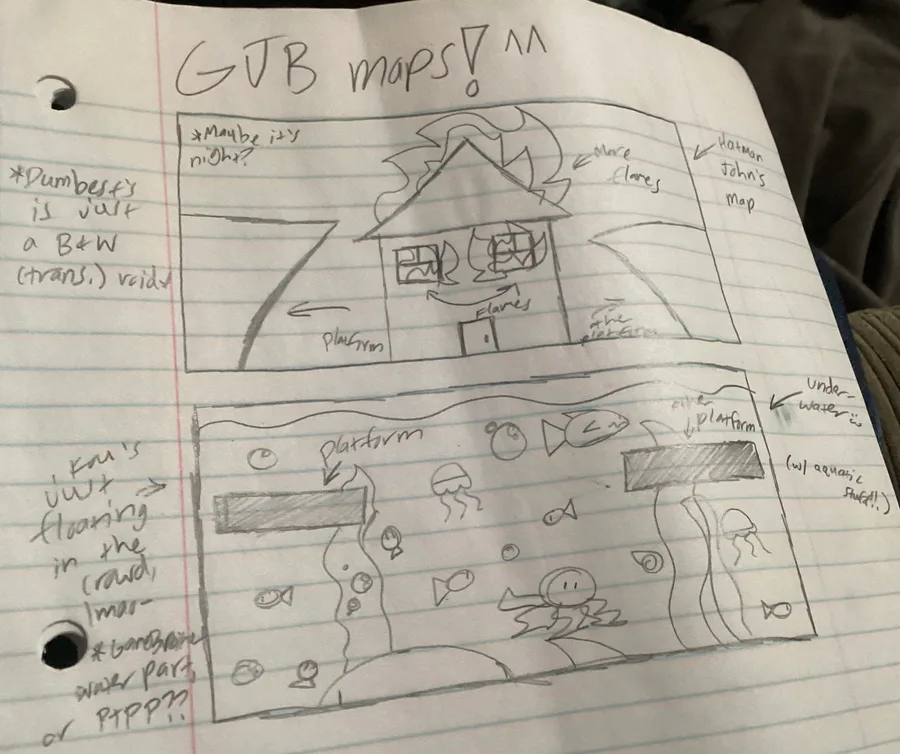 GJB maps! ^^
*Maybe it's
night?
More
flames
Hatman
John's
map
*Dumbest's
is just
a B+W
(trans.) void*
Flames
platform
the
platform
Under-
water
(w/ aquatic
stuff!!)
platform
other
platform
just
floating
in the
crowd,
lmao-
water part,
or PTPP??